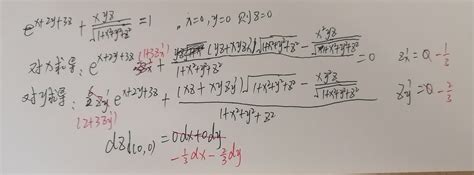 e^{x+2y+3z} + \frac{xyz}{\sqrt{1+x^2+y^2+z^2}} = 1 , x=0, y=0 则 z=0
对x求导: e^{x+2y+3z} (1+3z'_x) + \frac{(yz+xyz'_x)\sqrt{1+x^2+y^2+z^2} - \frac{x^2yz}{\sqrt{1+x^2+y^2+z^2}}}{1+x^2+y^2+z^2} = 0 z'_x = 0 -\frac{1}{3}
对y求导: (2+3z'_y) e^{x+2y+3z} + \frac{(xz+xyz'_y)\sqrt{1+x^2+y^2+z^2} - \frac{xy^2z}{\sqrt{1+x^2+y^2+z^2}}}{1+x^2+y^2+z^2} z'_y = 0 -\frac{2}{3}
dz|_{(0,0)} = 0dx+0dy
-\frac{1}{3}dx - \frac{2}{3}dy